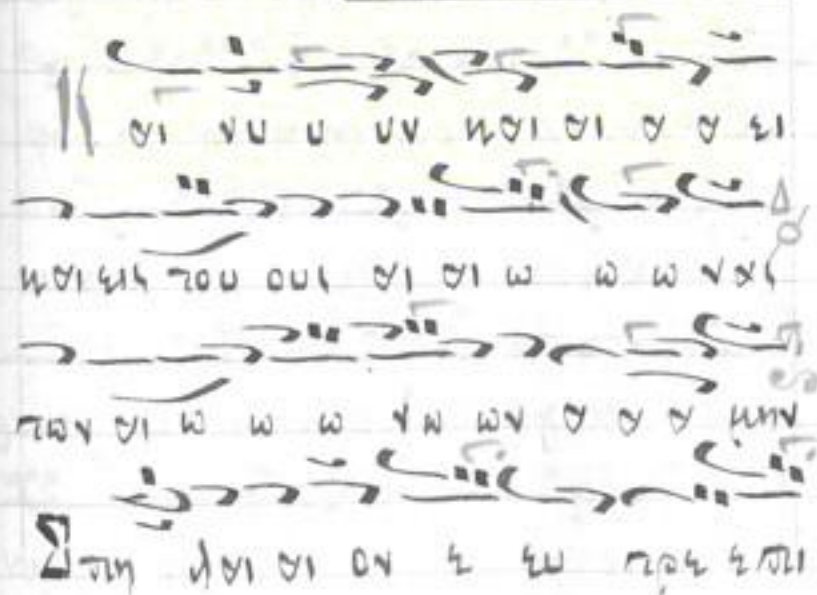 αι νυ υ υν και αι α α ει
και εις του ους αι αι ω ω ω νας
των αι ω ω ω νω ων α α α μην
Σπη λαι αι ον ε ευ τρε ε πι